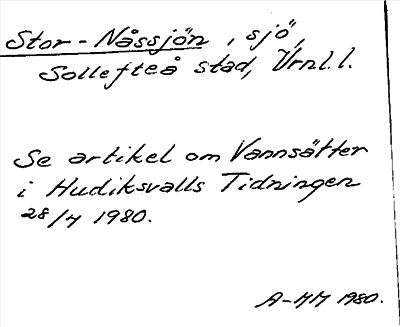 Stor-Nåssjön, sjö,
Sollefteå stad, Vrnl.l.
Se artikel om Vannsätter
i Hudiksvalls Tidningen
28/4 1980.
A-MM 1980.